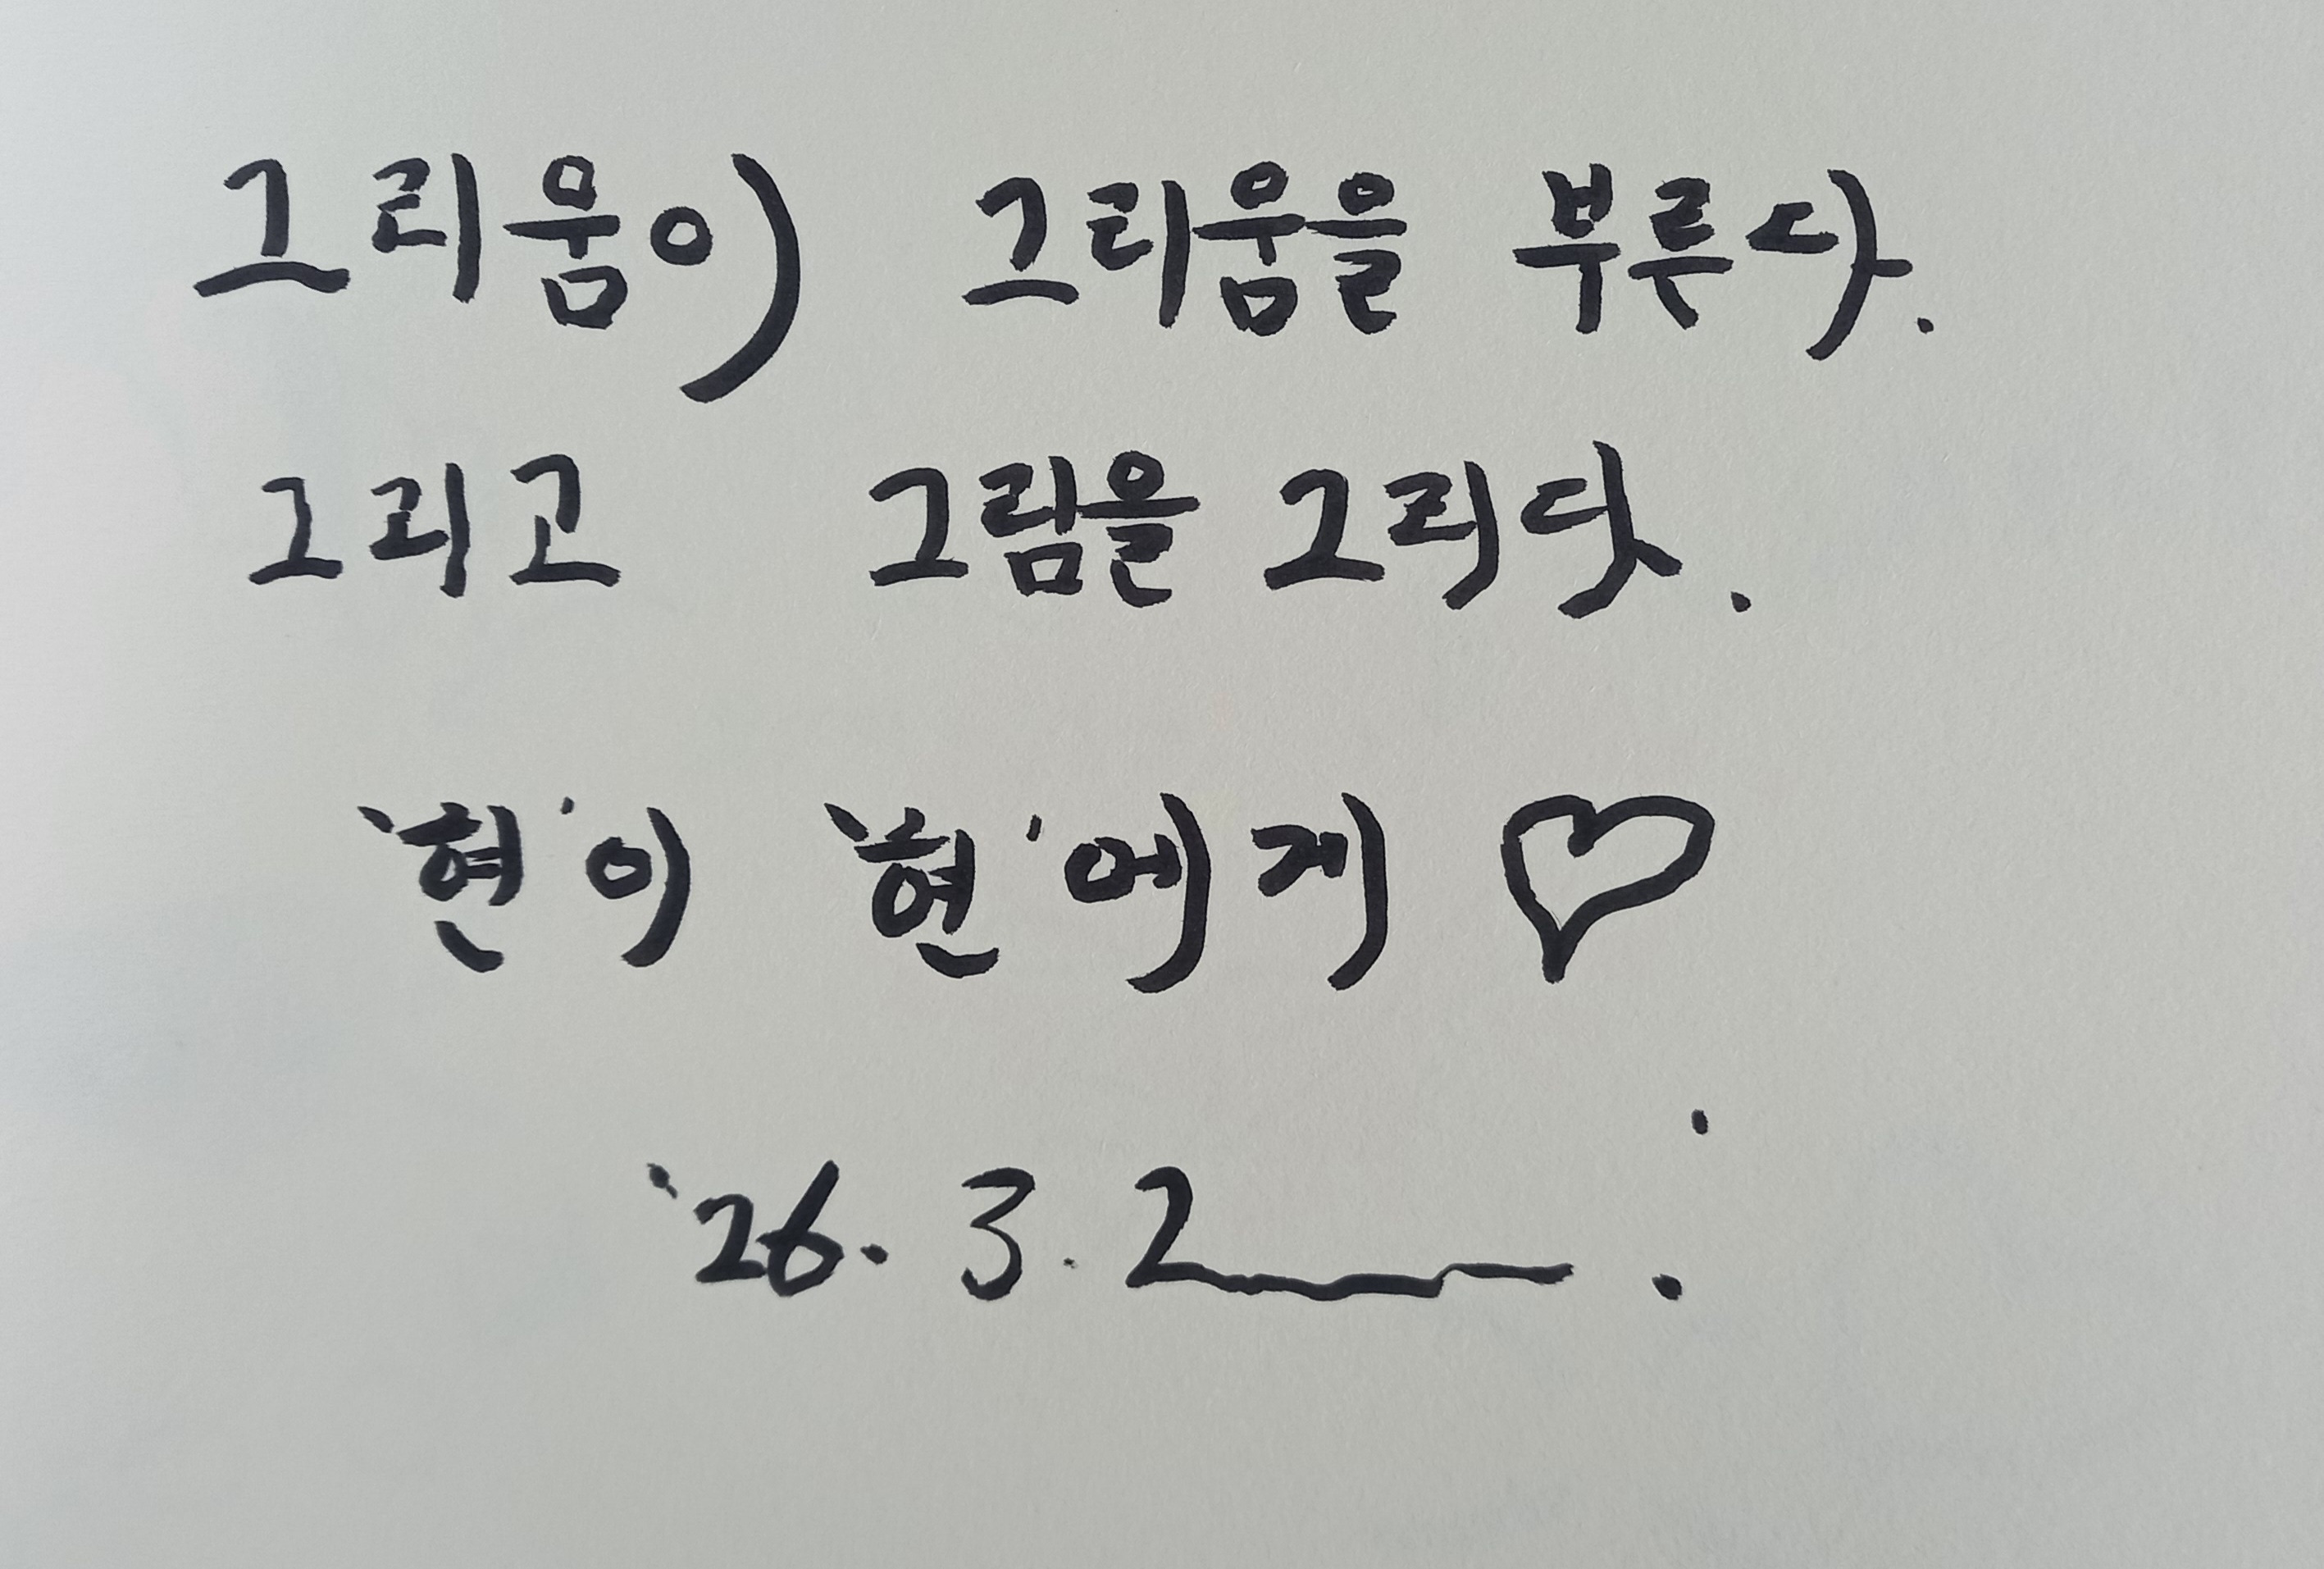 그리움이 그리움을 부른다.
그리고 그림을 그리다.
'현'이 '현'에게 ♡
'26. 3. 2.